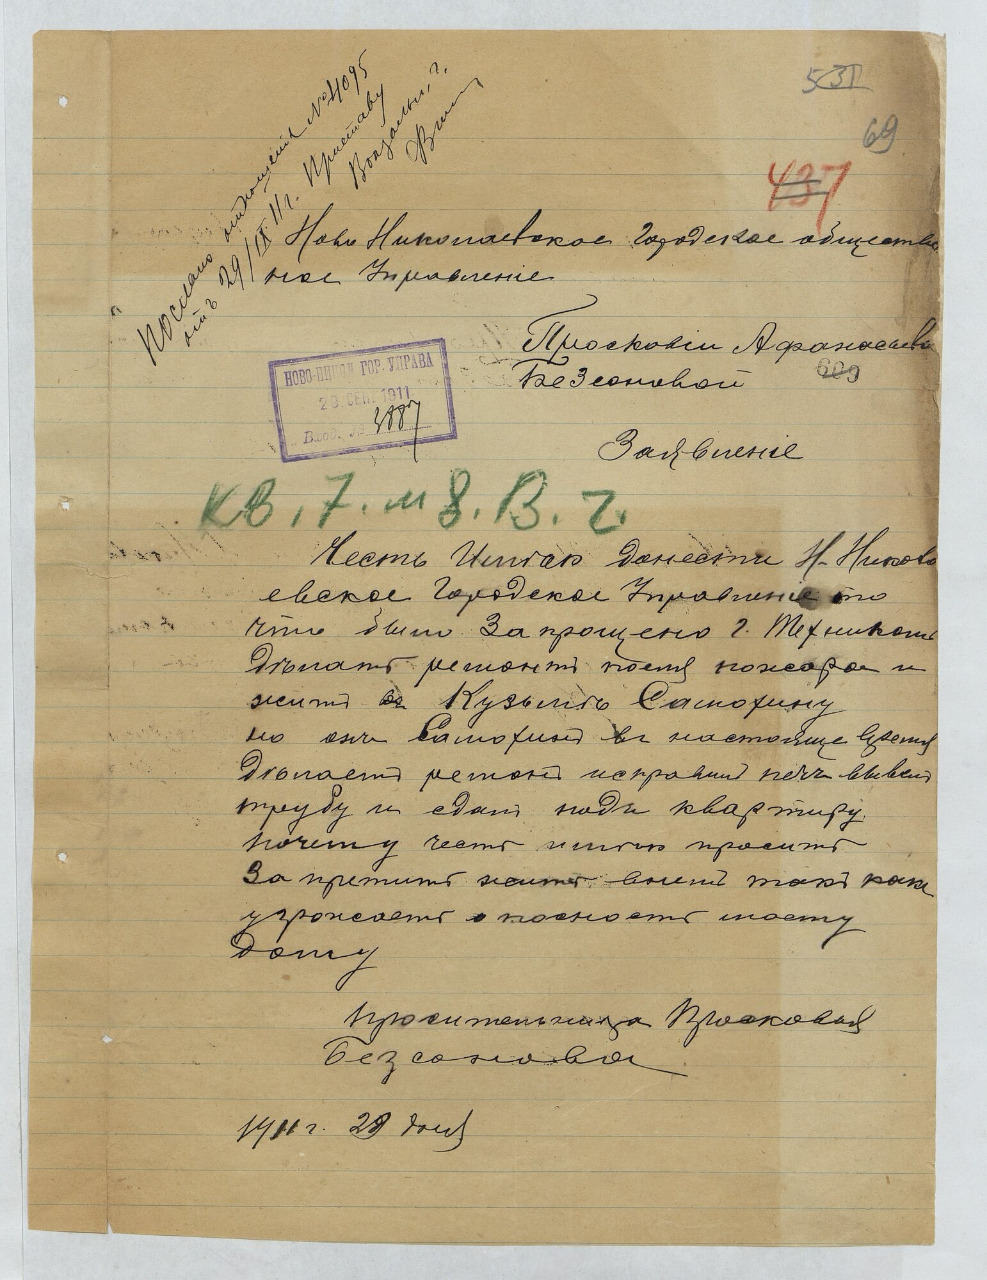 531
69
437
Послано отношенiя № 4095
отъ 29/IX 11 г. Приставу
Вокзальн. г.
Ново Николаевское Городское обществе
ное Управленiе
Просковiи Афанасьево
Безсоновой
609
НОВО-НИКОЛ. ГОР. УПРАВА
29 СЕН. 1911
Вход. № 3887
Заявленiе
кв. 7. м 8. В. ч.
Честь Имѣю донести Н-Никола
евское Городское Управленiе то
что было Запрощено г. Техником
Дѣлатъ ремонтъ посля пожара и
житъ Кузьмѣ Самохину
но онъ Самохинъ въ настояще время
Дѣлаетъ ремонтъ исправил печь вывел
трубу и сдаетъ подъ квартиру
почему честъ имѣю проситъ
Запретитъ житъ въ немъ такъ какъ
угрожаетъ опосностъ моему
дому
просительница Просковья
Безсонова
1911 г. 29 дня